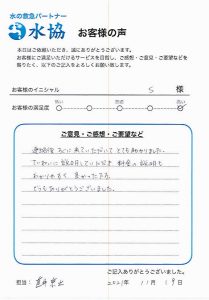 水の救急パートナー
水協 お客様の声
本日はご依頼いただき、誠にありがとうございます。
お客様にご満足いただけるサービスを目指し、ご感想・ご意見・ご要望などを
賜りたく、以下のご記入をよろしくお願い致します。
お客様のイニシャル S 様
お客様の満足度 低い 普通 高い
ご意見・ご感想・ご要望など
連絡後 すぐに来ていただいて とても助かりました。
ていねいに説明していただき 料金の説明も
わかりやすく 良かったです。
どうもありがとうございました。
ご記入ありがとうございました。
担当: 2021年 11月 19日